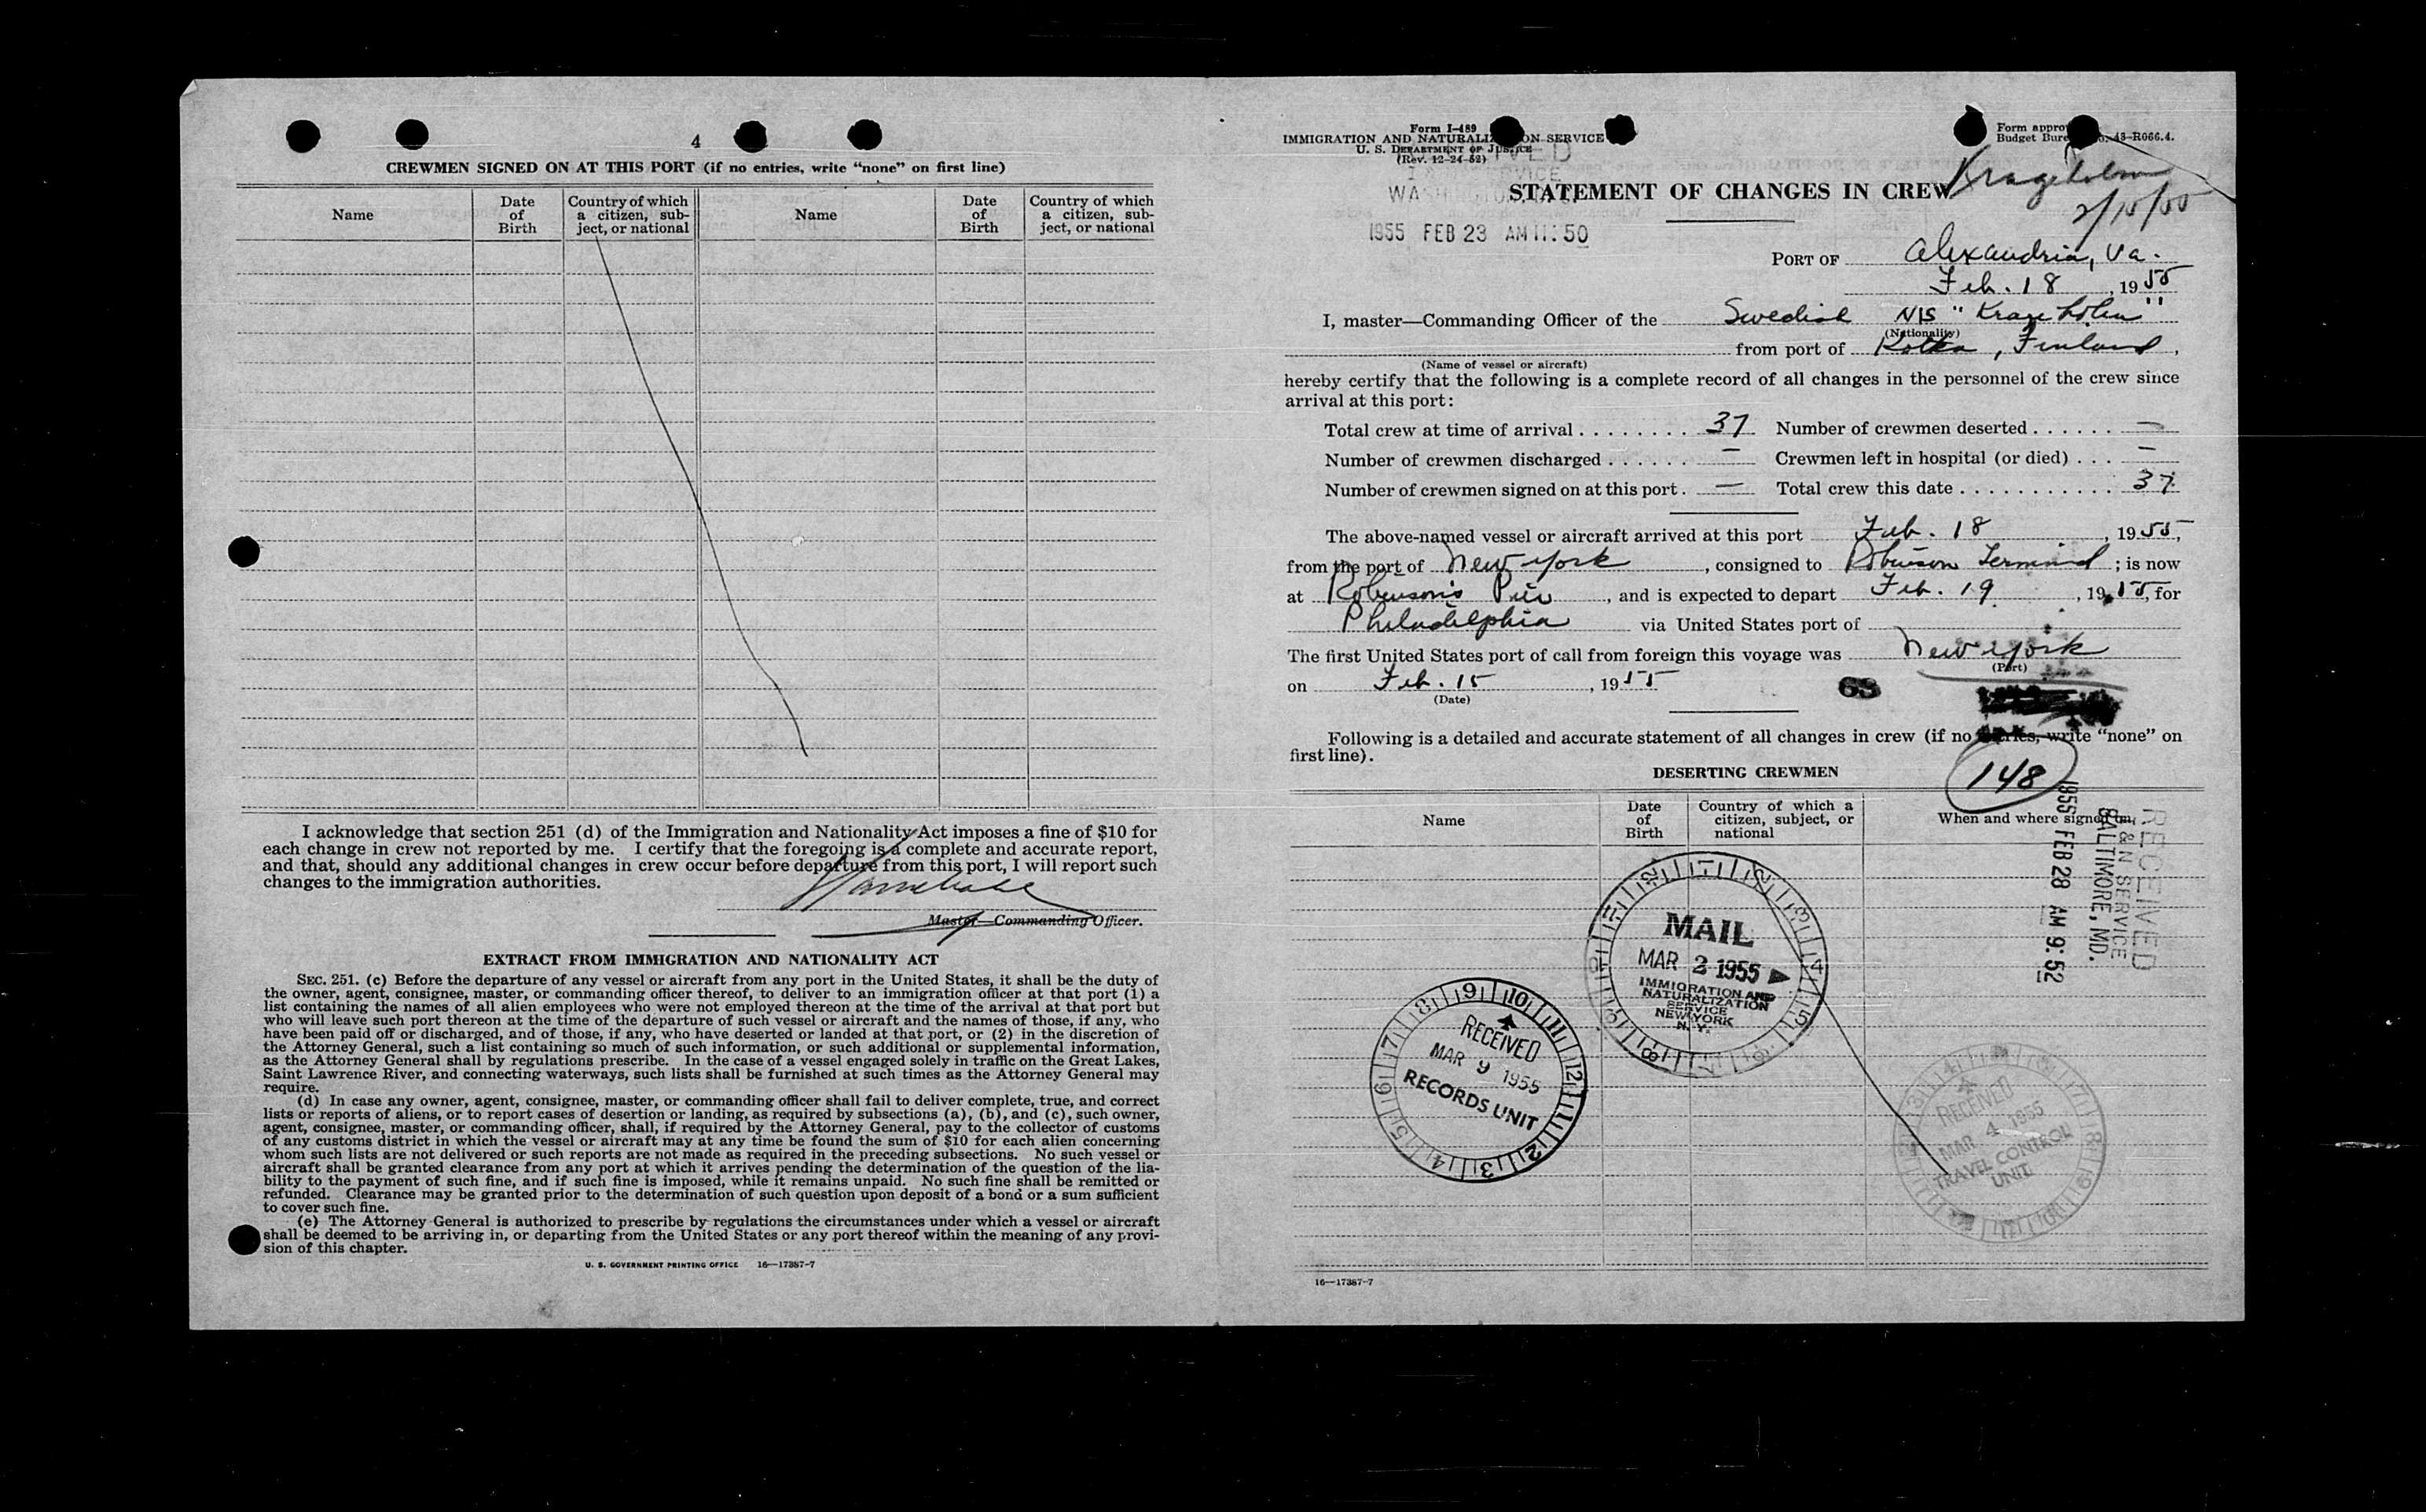 4
CREWMEN SIGNED ON AT THIS PORT (if no entries, write “none” on first line)
Name
Date of Birth
Country of which a citizen, subject, or national
Name
Date of Birth
Country of which a citizen, subject, or national
I acknowledge that section 251 (d) of the Immigration and Nationality Act imposes a fine of $10 for
each change in crew not reported by me. I certify that the foregoing is a complete and accurate report,
and that, should any additional changes in crew occur before departure from this port, I will report such
changes to the immigration authorities.
Master—Commanding Officer.
EXTRACT FROM IMMIGRATION AND NATIONALITY ACT
SEC. 251. (c) Before the departure of any vessel or aircraft from any port in the United States, it shall be the duty of
the owner, agent, consignee, master, or commanding officer thereof, to deliver to an immigration officer at that port (1) a
list containing the names of all alien employees who were not employed thereon at the time of the arrival at that port but
who will leave such port thereon at the time of the departure of such vessel or aircraft and the names of those, if any, who
have been paid off or discharged, and of those, if any, who have deserted or landed at that port, or (2) in the discretion of
the Attorney General, such a list containing so much of such information, or such additional or supplemental information,
as the Attorney General shall by regulations prescribe. In the case of a vessel engaged solely in traffic on the Great Lakes,
Saint Lawrence River, and connecting waterways, such lists shall be furnished at such times as the Attorney General may
require.
(d) In case any owner, agent, consignee, master, or commanding officer shall fail to deliver complete, true, and correct
lists or reports of aliens, or to report cases of desertion or landing, as required by subsections (a), (b), and (c), such owner,
agent, consignee, master, or commanding officer, shall, if required by the Attorney General, pay to the collector of customs
of any customs district in which the vessel or aircraft may at any time be found the sum of $10 for each alien concerning
whom such lists are not delivered or such reports are not made as required in the preceding subsections. No such vessel or
aircraft shall be granted clearance from any port at which it arrives pending the determination of the question of the lia-
bility to the payment of such fine, and if such fine is imposed, while it remains unpaid. No such fine shall be remitted or
refunded. Clearance may be granted prior to the determination of such question upon deposit of a bond or a sum sufficient
to cover such fine.
(e) The Attorney General is authorized to prescribe by regulations the circumstances under which a vessel or aircraft
shall be deemed to be arriving in, or departing from the United States or any port thereof within the meaning of any provi-
sion of this chapter.
U. S. GOVERNMENT PRINTING OFFICE 16—17387-7
Form I-489
IMMIGRATION AND NATURALIZATION SERVICE
U. S. DEPARTMENT OF JUSTICE
(Rev. 12-24-52)
Form approved
Budget Bureau No. 43-R066.4.
STATEMENT OF CHANGES IN CREW
Krageholm
2/15/55
1955 FEB 23 AM 11:50
PORT OF Alexandria, Va.
Feb. 18, 1955
I, master—Commanding Officer of the Swedish M/S "Krageholm"
(Nationality)
from port of Kotka, Finland,
(Name of vessel or aircraft)
hereby certify that the following is a complete record of all changes in the personnel of the crew since
arrival at this port:
Total crew at time of arrival . . . . . . . . 37 Number of crewmen deserted . . . . . . —
Number of crewmen discharged . . . . . . — Crewmen left in hospital (or died) . . . —
Number of crewmen signed on at this port . — Total crew this date . . . . . . . . . . . 37
The above-named vessel or aircraft arrived at this port Feb. 18, 1955,
from the port of New York, consigned to Robinson Terminal; is now
at Robinson's Pier, and is expected to depart Feb. 19, 1955, for
Philadelphia via United States port of
The first United States port of call from foreign this voyage was New York
(Port)
on Feb. 15, 1955
(Date)
63
Following is a detailed and accurate statement of all changes in crew (if no entries, write “none” on
first line).
148
DESERTING CREWMEN
Name
Date of Birth
Country of which a citizen, subject, or national
When and where signed on
RECEIVED
I & N SERVICE
BALTIMORE, MD.
1955 FEB 28 AM 9:52
MAIL
MAR 2 1955
IMMIGRATION AND
NATURALIZATION
SERVICE
NEW YORK
N. Y.
RECEIVED
MAR 9 1955
RECORDS UNIT
RECEIVED
MAR 4 1955
TRAVEL CONTROL
UNIT
16—17387-7